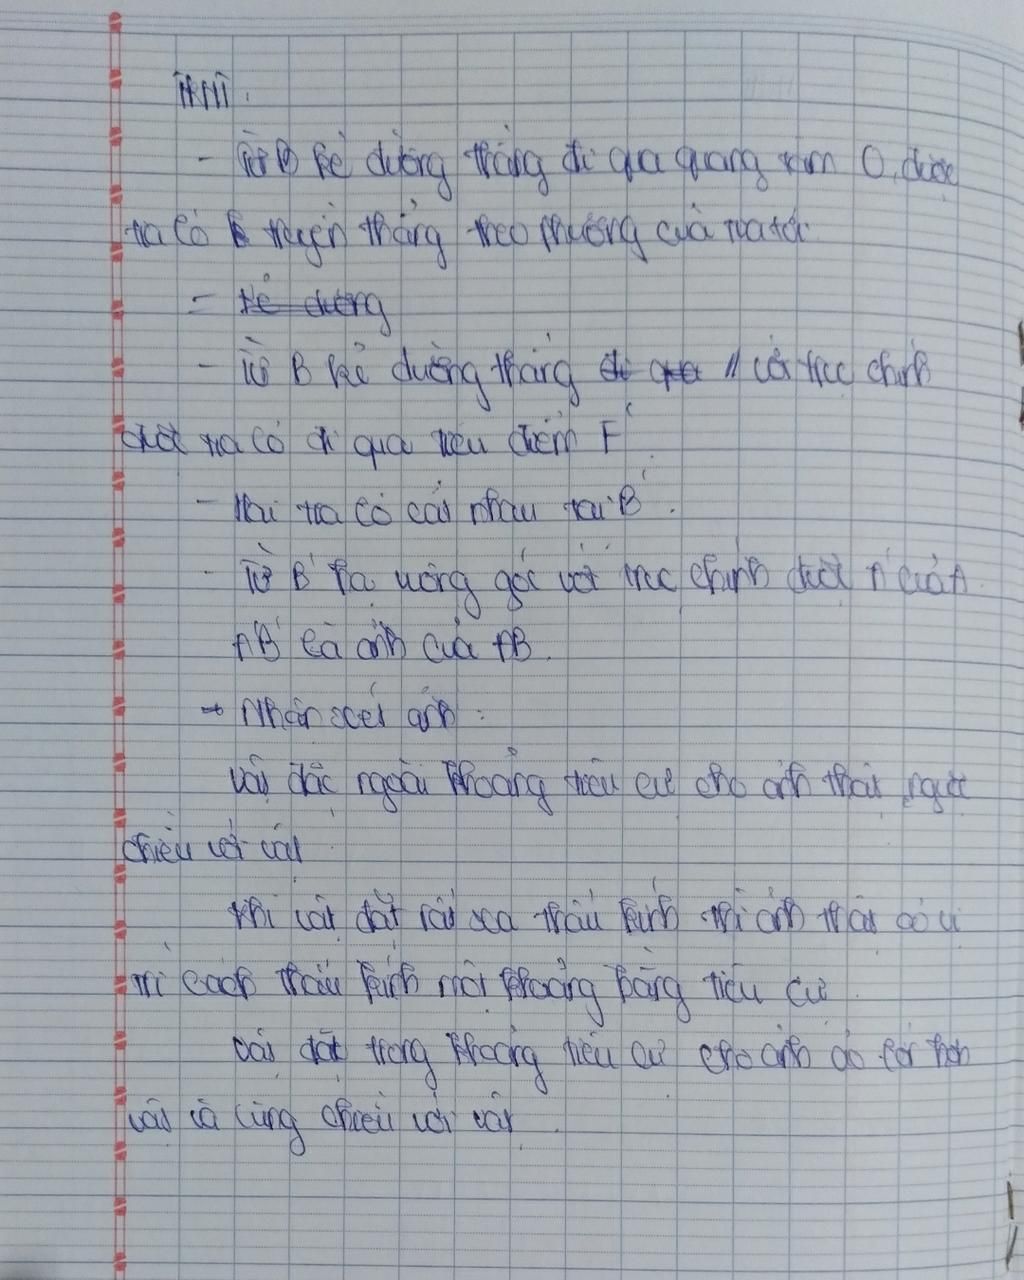 - Từ B kẻ đường thẳng đi qua quang tâm O, được
tia ló truyền thẳng theo phương của tia tới
- Kẻ đường
- Từ B kẻ đường thẳng đi qua // với trục chính
được tia ló đi qua tiêu điểm F'
- Hai tia ló cắt nhau tại B'.
- Từ B' hạ vuông góc với trục chính được A' của A.
A'B' là ảnh của AB.
→ Nhận xét ảnh:
Vật đặt ngoài khoảng tiêu cự cho ảnh thật, ngược
chiều với vật
Khi vật đặt rất xa thấu kính thì ảnh thật có vị
trí cách thấu kính một khoảng bằng tiêu cự.
Vật đặt trong khoảng tiêu cự cho ảnh ảo lớn hơn
vật và cùng chiều với vật.